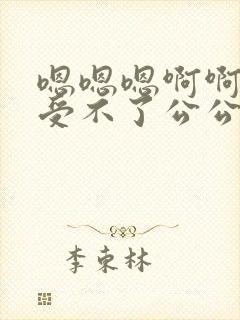 嗯嗯嗯啊啊
受不了公公
李东林